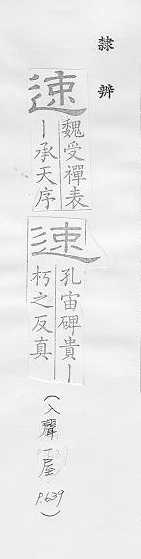 隸辨
速
魏受禪表
｜承天序
速
孔宙碑貴｜
朽之反真
(入聲一屋
P.639)